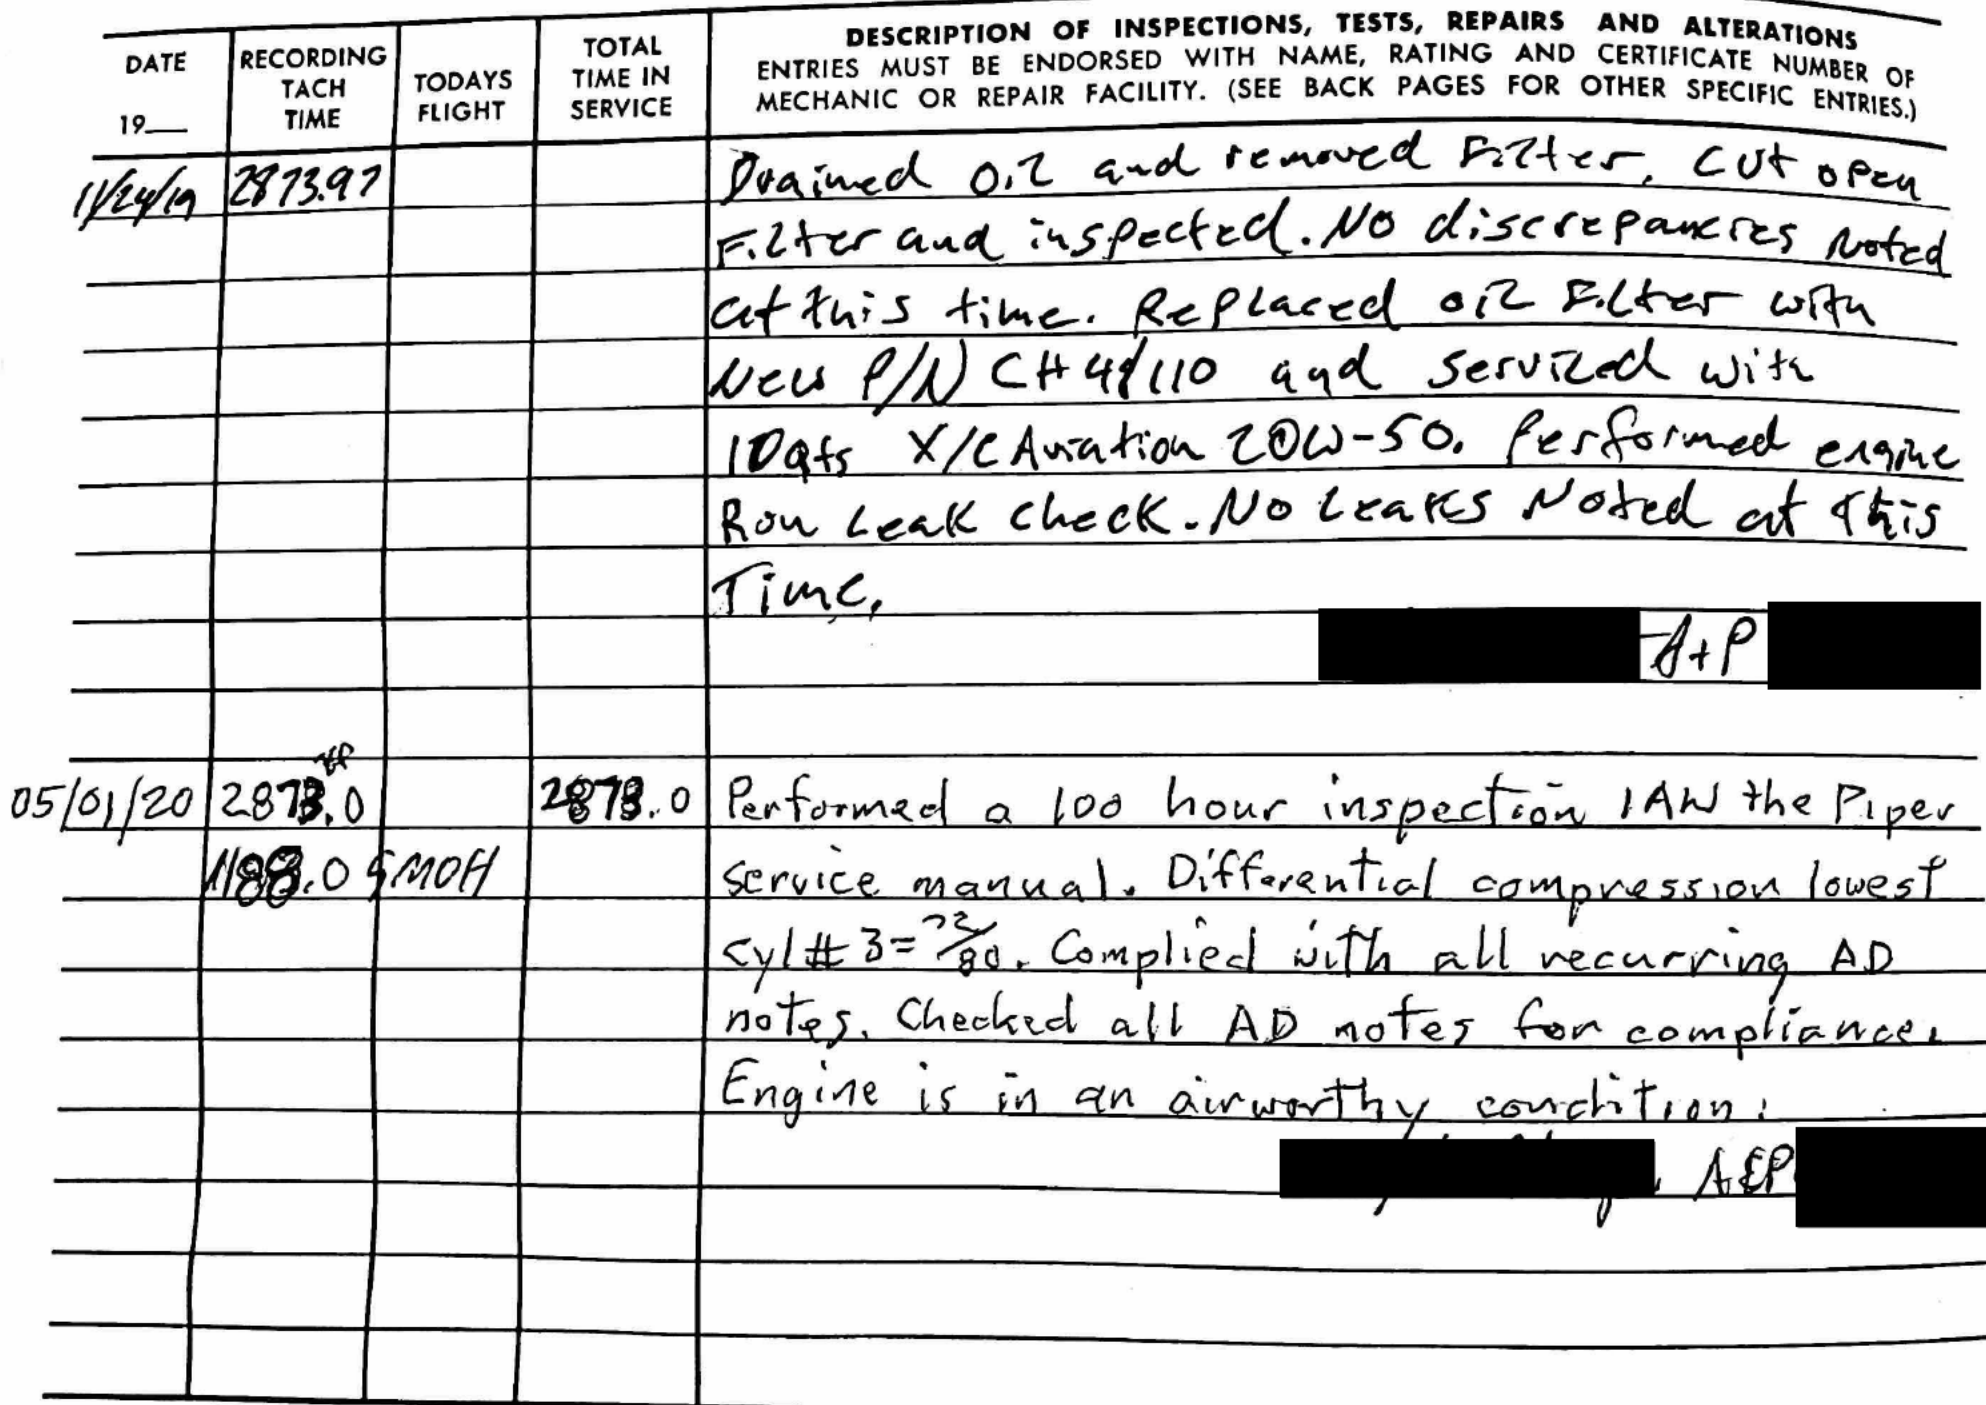 DATE
19__
RECORDING
TACH
TIME
TODAYS
FLIGHT
TOTAL
TIME IN
SERVICE
DESCRIPTION OF INSPECTIONS, TESTS, REPAIRS AND ALTERATIONS
ENTRIES MUST BE ENDORSED WITH NAME, RATING AND CERTIFICATE NUMBER OF
MECHANIC OR REPAIR FACILITY. (SEE BACK PAGES FOR OTHER SPECIFIC ENTRIES.)
11/24/19 2873.97 Drained oil and removed Filter. Cut open
Filter and inspected. No discrepancies Noted
at this time. Replaced oil Filter with
New P/N and serviced with
10qts X/C Aviation 20W-50. Performed engine
Run Leak check. No Leaks Noted at this
Time.
A+P
05/01/20 Performed a 100 hour inspection IAW the Piper
SMOH service manual. Differential compression lowest
cyl # 3 = 72/80. Complied with all recurring AD
notes. Checked all AD notes for compliance.
Engine is in an airworthy condition.
A&P